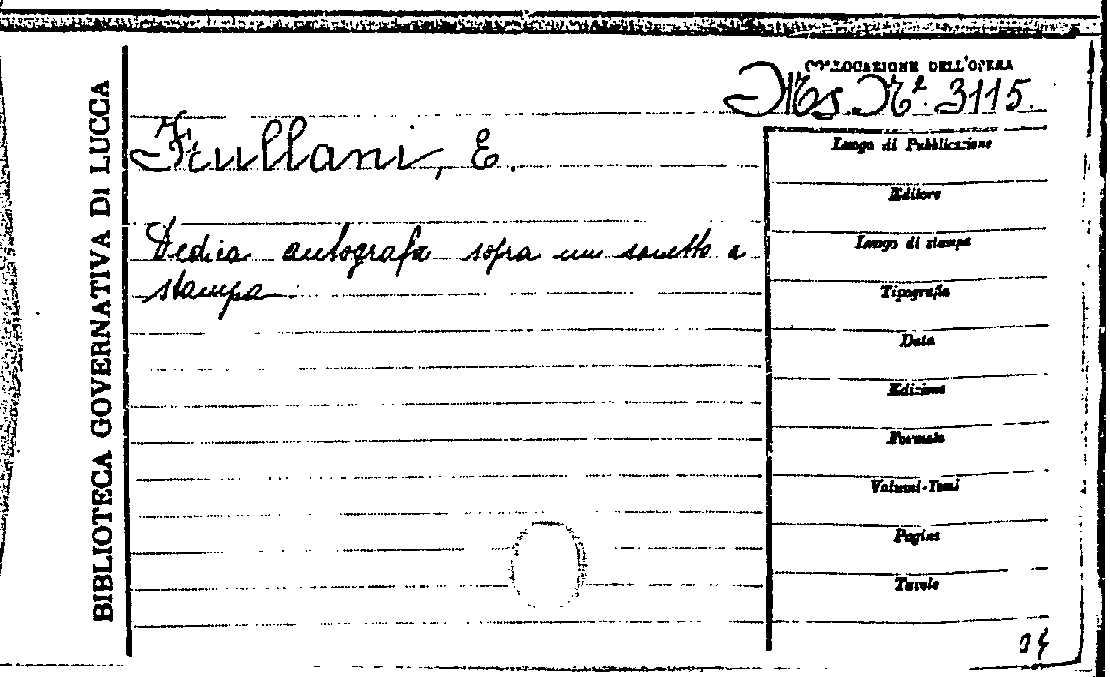 BIBLIOTECA GOVERNATIVA DI LUCCA
COLLOCAZIONE DELL'OPERA
Ms. Nº 3115.
Frullani, E.
Dedica autografa sopra un sonetto a
stampa.
Luogo di Pubblicazione
Editore
Luogo di stampa
Tipografia
Data
Edizione
Formato
Volumi-Tomi
Pagine
Tavole